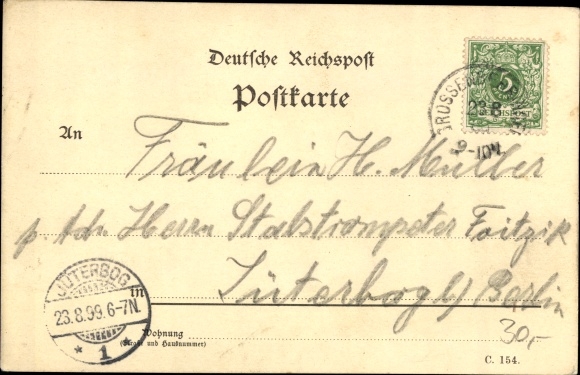 Deutsche Reichspost
Postkarte
5
23.8.
9-10V.
An
Fräulein H. Müller
p. Adr. Herrn Stabstrompeter Foitzik
in Jüterbog b/ Berlin
JÜTERBOG
23.8.99.6-7N.
* 1 *
Wohnung
(Straße und Hausnummer)
30,-
C. 154.